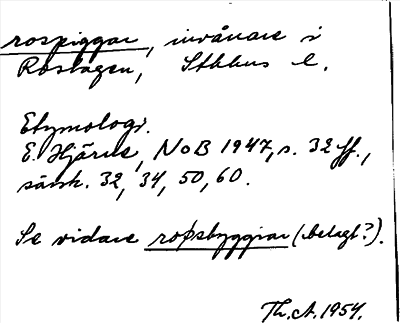 rospiggar, invånare i
Roslagen, Sthlms l.
Etymologi.
E. Hjärne, NoB 1947, s. 32 ff.,
särsk. 32, 34, 50, 60.
Se vidare roþsbyggiar (belagt?).
Th. A. 1954.